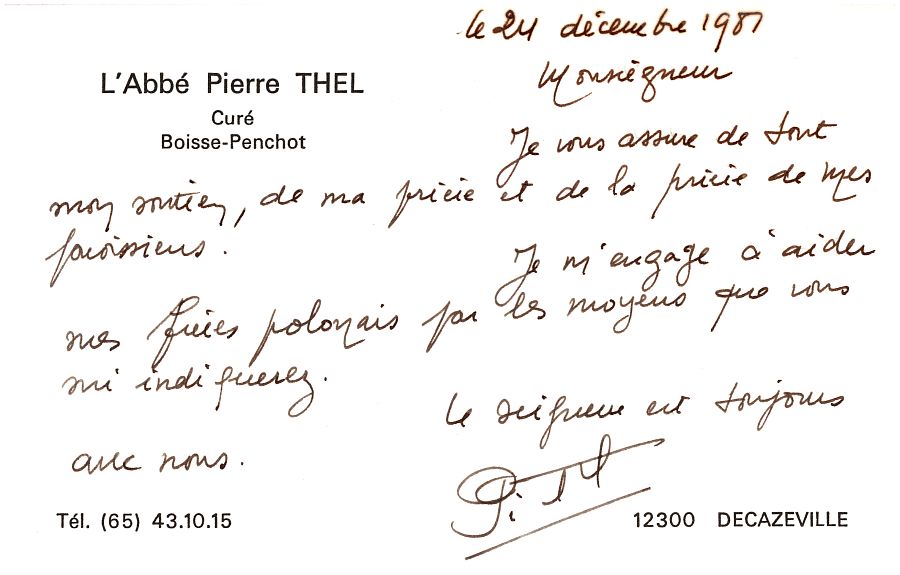 le 24 décembre 1981
L'Abbé Pierre THEL
Curé
Boisse-Penchot
Monseigneur
Je vous assure de tout
mon soutien, de ma prière et de la prière de mes
paroissiens.
Je m'engage à aider
mes frères polonais par les moyens que vous
m'indiquerez.
Le seigneur est toujours
avec nous.
Tél. (65) 43.10.15
12300 DECAZEVILLE